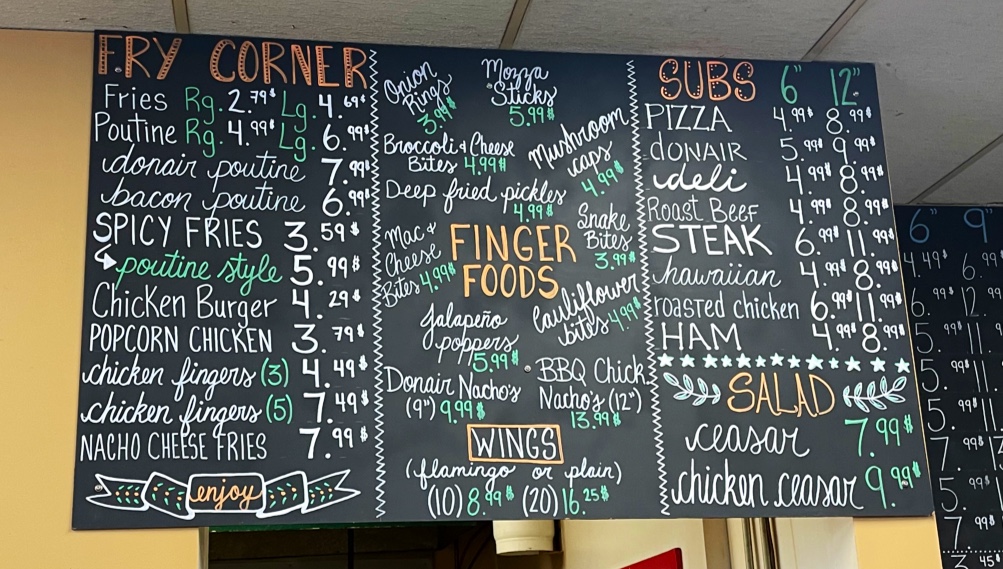 FRY CORNER
Fries Rg. 2.79$ Lg. 4.69$
Poutine Rg. 4.99$ Lg. 6.99$
donair poutine 7.99$
bacon poutine 6.99$
SPICY FRIES 3.59$
poutine style 5.99$
Chicken Burger 4.29$
POPCORN CHICKEN 3.79$
chicken fingers (3) 4.49$
chicken fingers (5) 7.49$
NACHO CHEESE FRIES 7.99$
enjoy
Onion
Rings
3.99$
Mozza
Sticks
5.99$
Broccoli & Cheese
Bites 4.99$
Mushroom
caps
4.99$
Deep fried pickles
4.99$
Mac &
Cheese
Bites 4.99$
FINGER
FOODS
Snake
Bites
3.99$
Jalapeño
poppers
5.99$
Cauliflower
bites 4.99$
Donair Nacho's
(9") 9.99$
BBQ Chick
Nacho's (12")
13.99$
WINGS
(flamingo or plain)
(10) 8.99$ (20) 16.25$
SUBS 6" 12"
PIZZA 4.99$ 8.99$
DONAIR 5.99$ 9.99$
deli 4.99$ 8.99$
Roast Beef 4.99$ 8.99$
STEAK 6.99$ 11.99$
hawaiian 4.99$ 8.99$
roasted chicken 6.99$ 11.99$
HAM 4.99$ 8.99$
SALAD
ceasar 7.99$
chicken ceasar 9.99$
6" 9"
4.49$ 6.99$